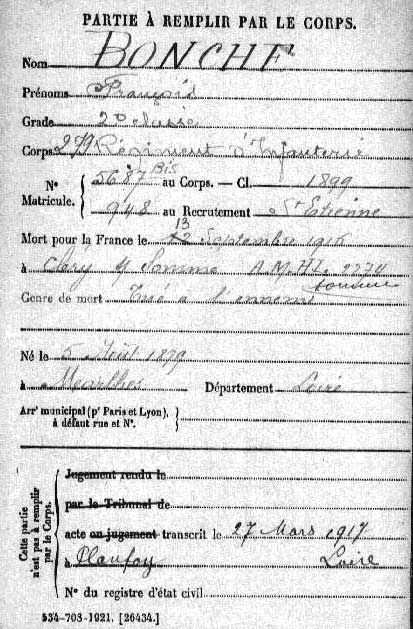 PARTIE À REMPLIR PAR LE CORPS.
Nom BONCHE
Prénoms François
Grade 2e classe
Corps 279 Régiment d'Infanterie
N° Matricule. { 5687 Bis au Corps. — Cl. 1899
948 au Recrutement St Etienne
13
Mort pour la France le 12 Septembre 1916
à Cléry s/ Somme A.M.H.L. 2274
Genre de mort Tué à l'ennemi
Né le 5 Août 1879
à Marlhes Département Loire
Arrt municipal (pr Paris et Lyon), à défaut rue et N°. }
Cette partie n'est pas à remplir par le Corps.
Jugement rendu le
par le Tribunal de
acte ou jugement transcrit le 27 Mars 1917
à Planfoy Loire
N° du registre d'état civil
534-708-1921. [26434.]